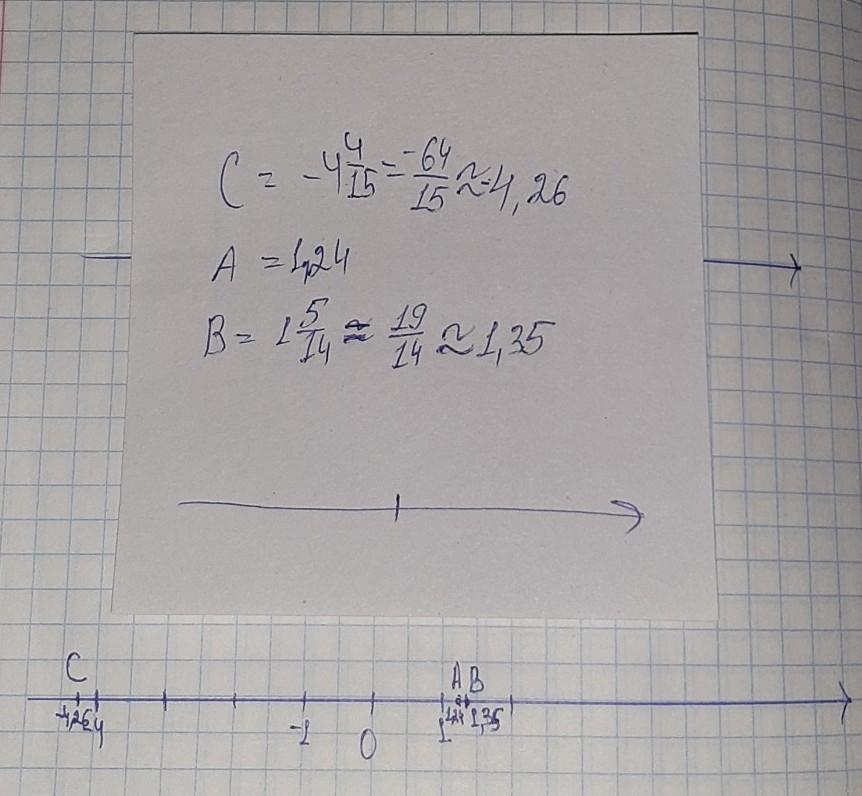 C = -4 4/15 = -64/15 ≈ -4,26
A = 1,24
B = 1 5/14 ≈ 19/14 ≈ 1,35
C A B
-4,26 -4 -1 0 1 1,24 1,35